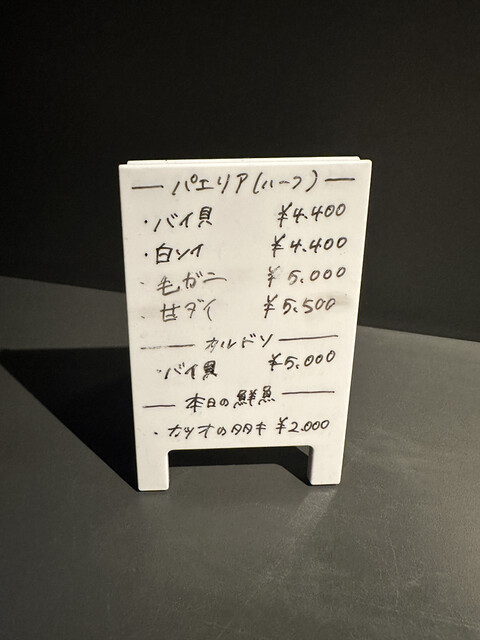 — パエリア(ハーフ) —
・バイ貝 ¥4.400
・白ソイ ¥4.400
・毛ガニ ¥5.000
・甘ダイ ¥5.500
— カルドソ —
・バイ貝 ¥5.000
— 本日の鮮魚 —
・カツオのタタキ ¥2.000